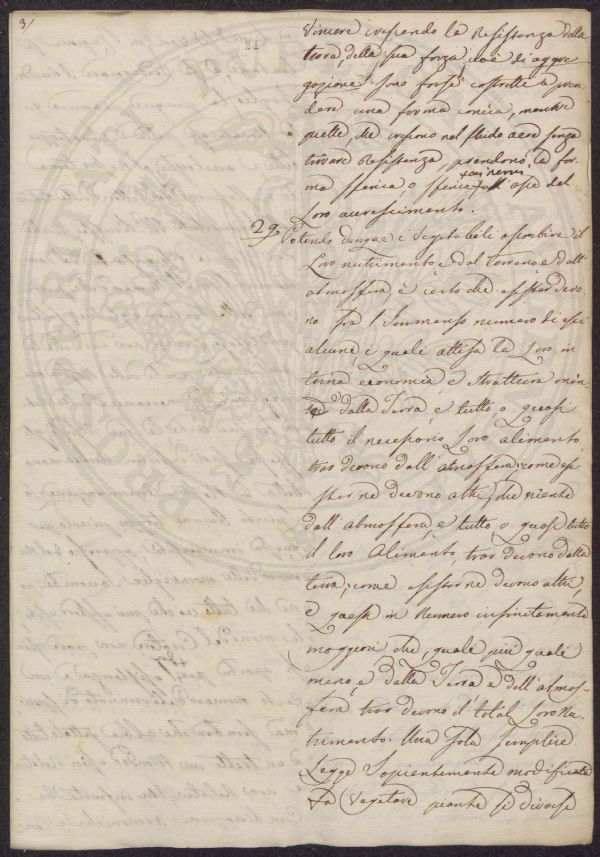 3/
vincere crescendo la Resistenza dalla
terra, della sua forza, cioè di aggre
gazione. Sono forse costrette a pren
dere una forma conica, mentre
quelle, che crescono nel fluido aereo senza
trovare Resistenza, prendono, la for
ma sferica, o
all' asse del
Loro accrescimento.
29 Potendo dunque i Vegetabili assorbire il
Loro nutrimento e dal terreno e dall'
atmosfera, è certo che esister devo
no fra l'Immenso numero di essi
alcuni, i quali attesa la Loro in
terna economia, e struttura nien
te dalla Terra, e tutto, o quasi
tutto il necessario Loro alimento
trar devono dall' atmosfera; come esi
ster ne devono altri, che niente
dall' atmosfera, e tutto o quasi tutto
il loro Alimento, trar devono dalla
terra; come esister ne devono altri,
e questi in Numero infinitamente
maggiori che, quale più quale
meno, e dalla Terra e dall' atmos
fera trar devono il total Loro Nu
trimento. Una sola semplice
Legge Sapientemente modificata
fa Vegetare piante sì diverse